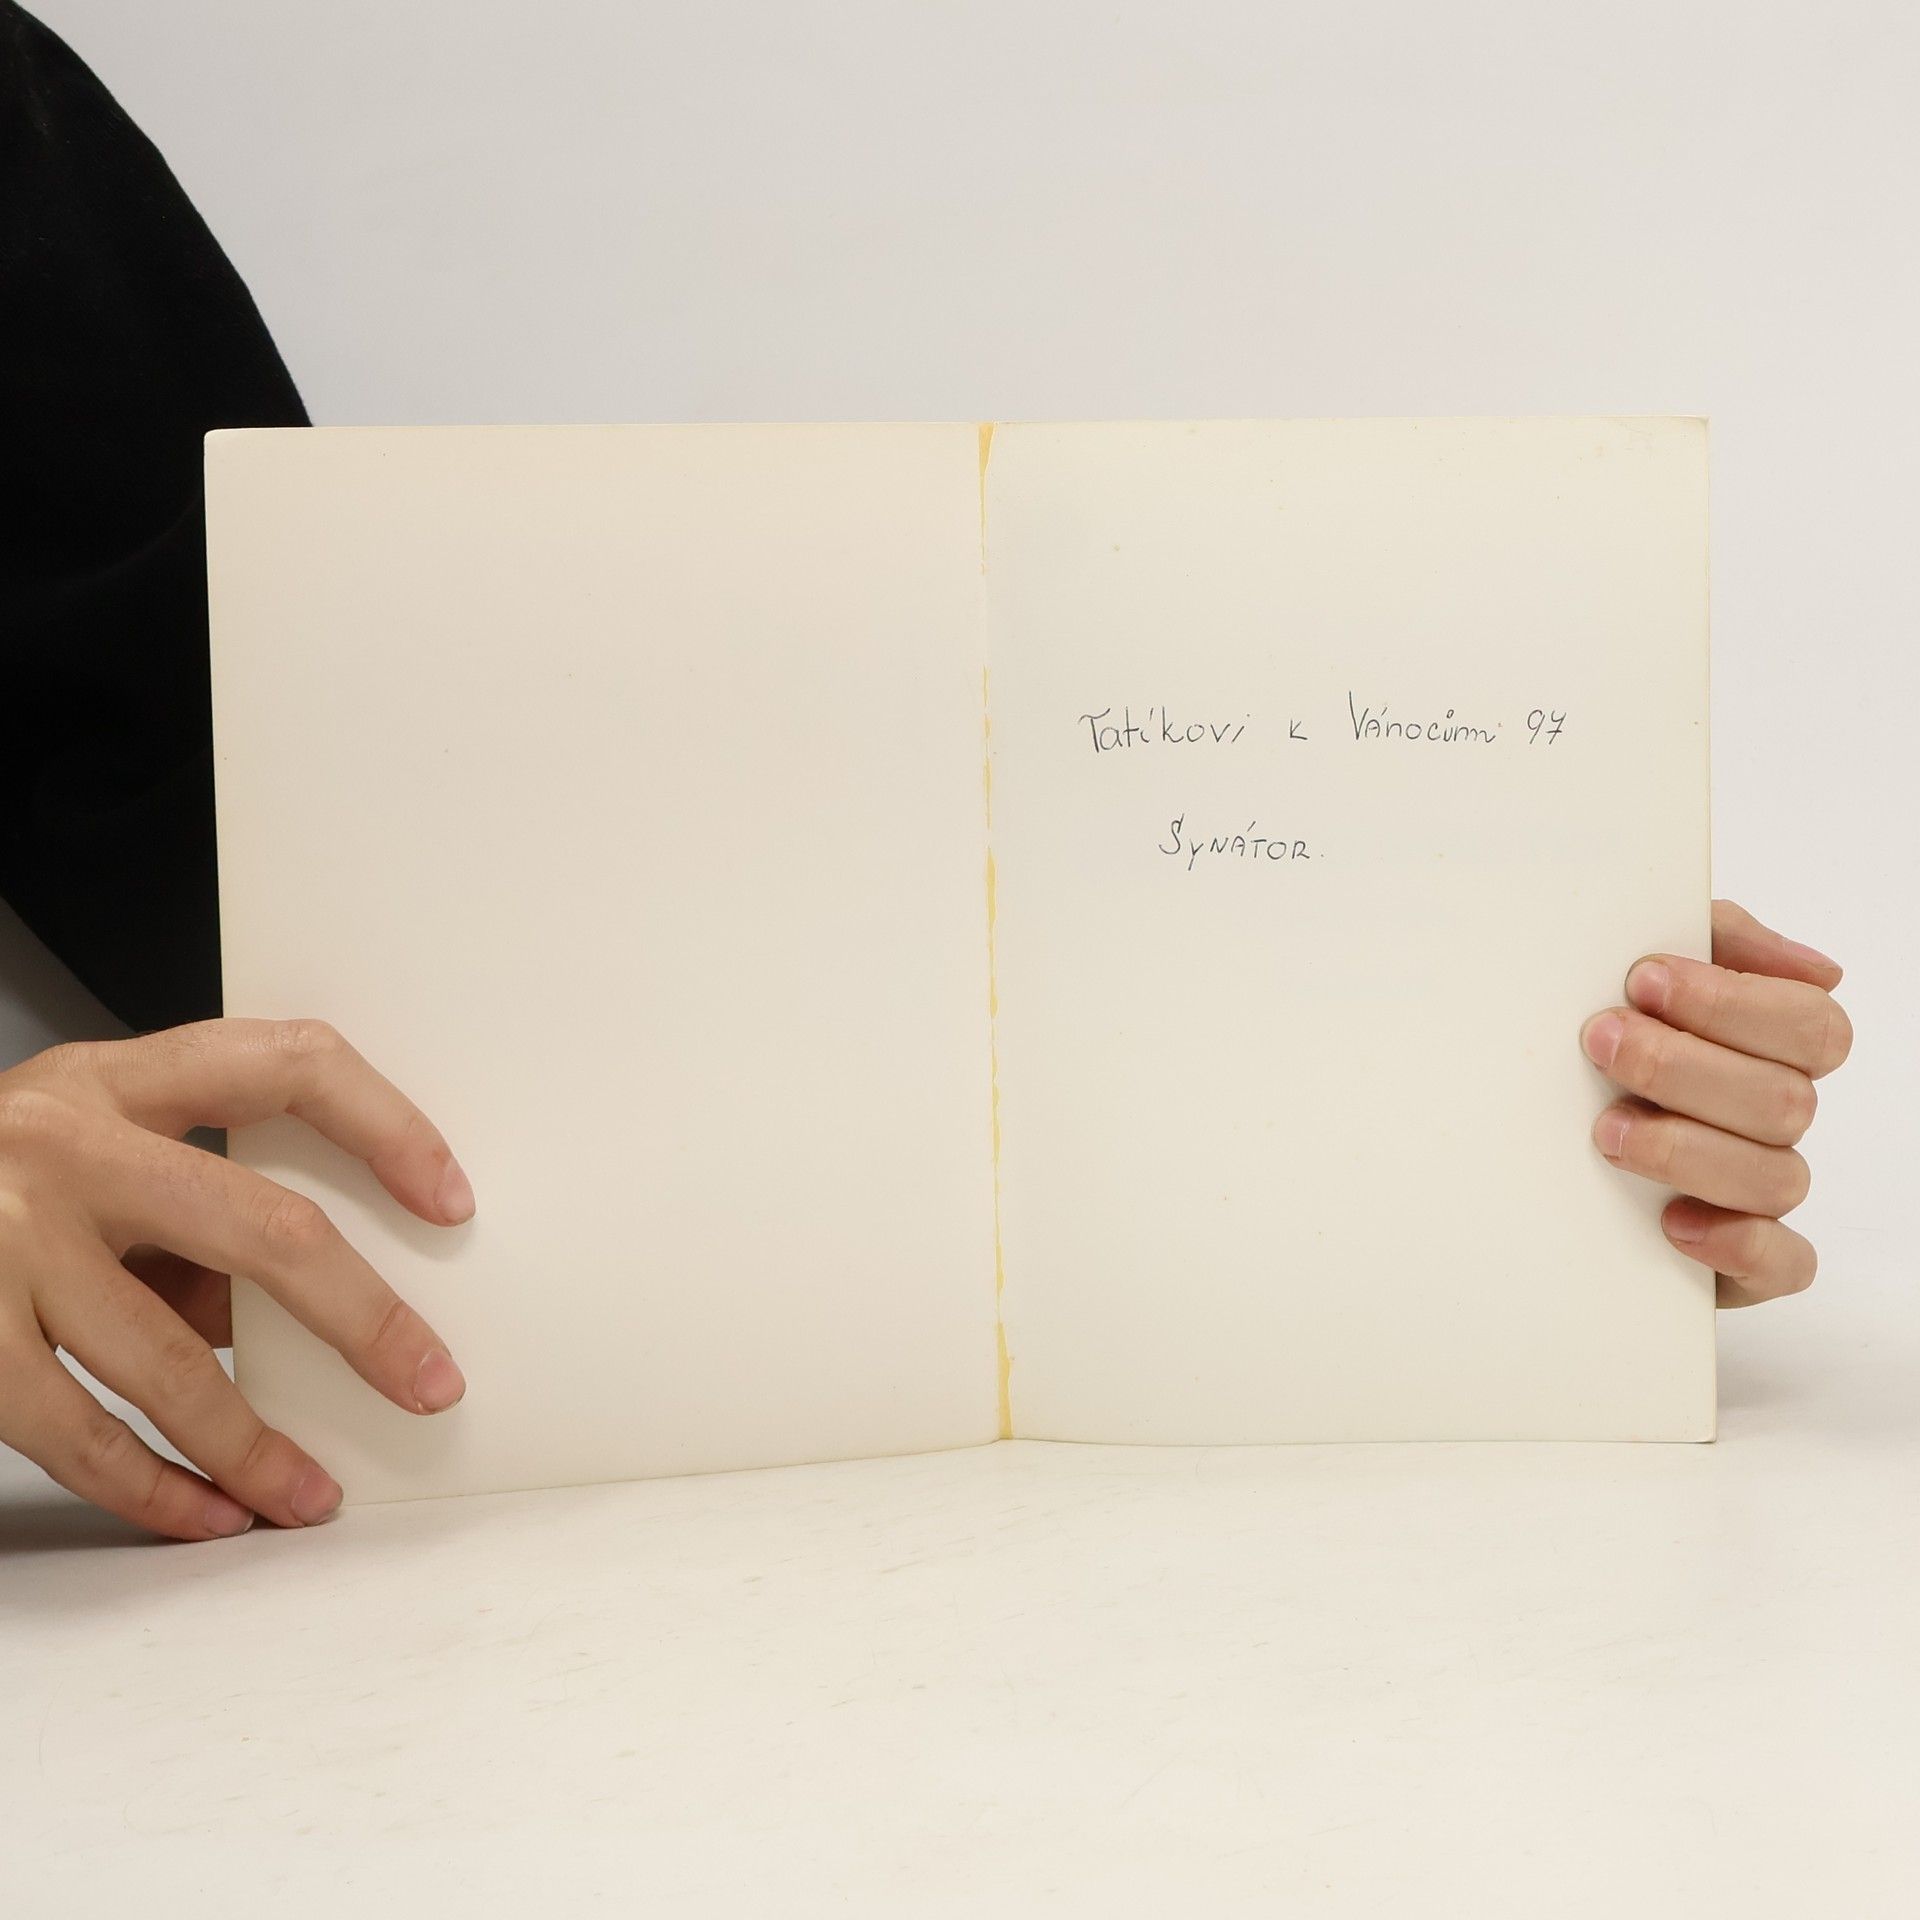 Tatíkovi k Vánocům 97
Synátor.